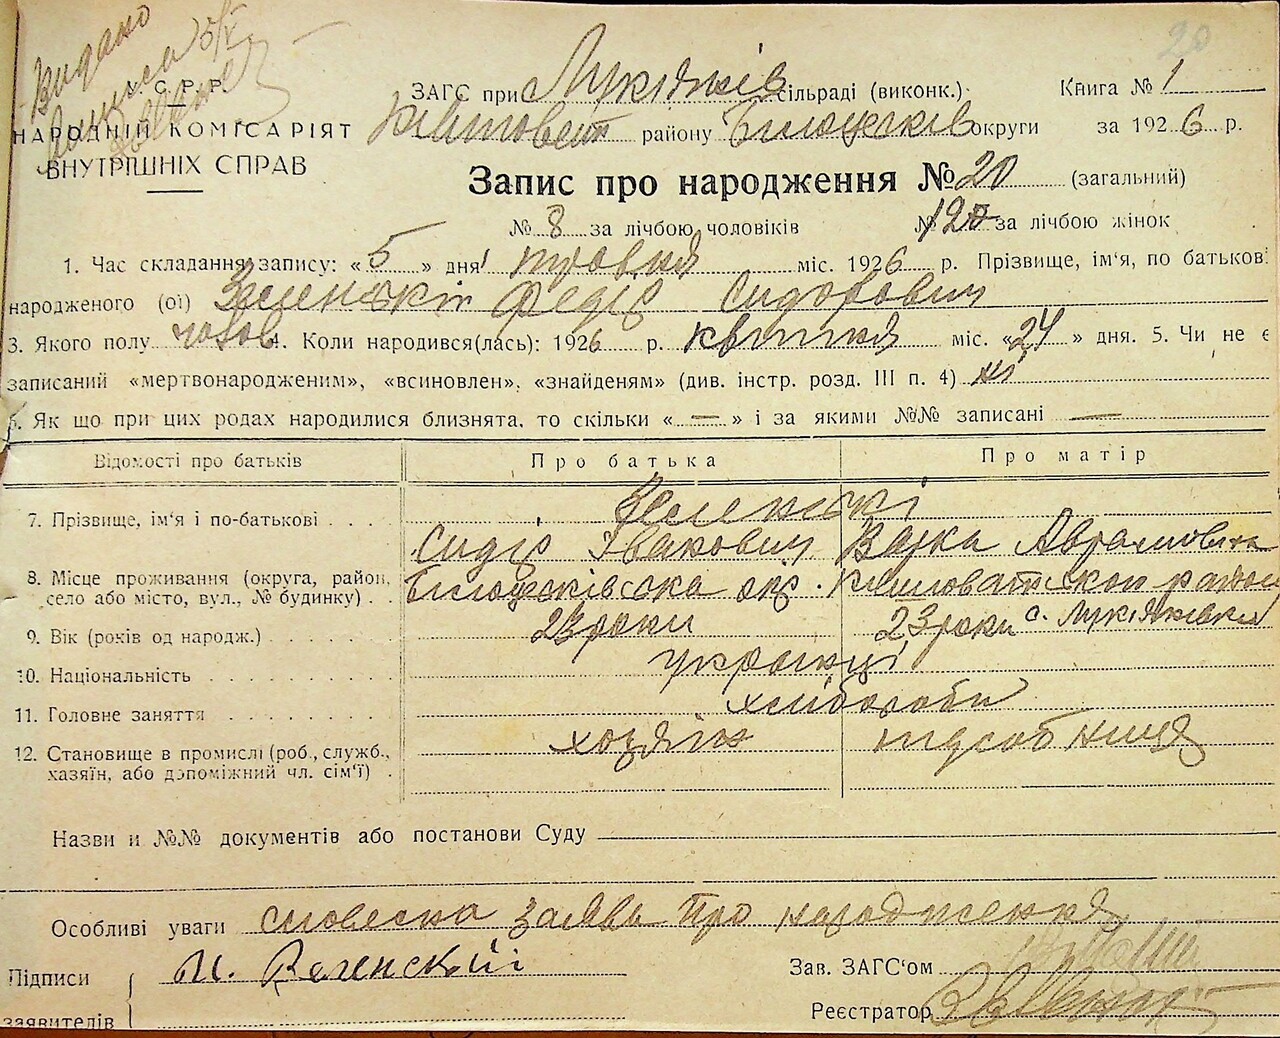 20
Видано
У. С. Р. Р.
НАРОДНІЙ КОМІСАРІЯТ
ВНУТРІШНІХ СПРАВ
ЗАГС при Лукіянів сільраді (виконк.) Книга № 1
району Білоцерків округи за 1926 р.
Запис про народження № 20 (загальний)
№ 8 за лічбою чоловіків № 12 за лічбою жінок
1. Час складання запису: «5» дня травня міс. 1926 р. Прізвище, ім'я, по батьков
народженого (ої) Зеленські Федір Сидорович
3. Якого полу чолов 4. Коли народився(лась): 1926 р. квітня міс. «24» дня. 5. Чи не є
записаний «мертвонародженим», «всиновлен», «знайденям» (див. інстр. розд. III п. 4) ні
6. Як що при цих родах народилися близнята, то скільки « — » і за якими №№ записані —
Відомості про батьків Про батька Про матір
7. Прізвище, ім'я і по-батькові Зеленські
Сидір Івакович Авра­мовна
8. Місце проживання (округа, район, село або місто, вул., № будинку) Білоцерківська окр. район
с. Лукіянівки
9. Вік (років од народж.) 23 роки 23 роки
10. Національність українці
11. Головне заняття хлібороби
12. Становище в промислі (роб., служб., хазяїн, або допоміжний чл. сім'ї) хозяїн підсобниця
Назви и №№ документів або постанови Суду
Особливі уваги словесна заява про народження
Підписи заявителів Зеленский
Зав. ЗАГС'ом
Реєстратор